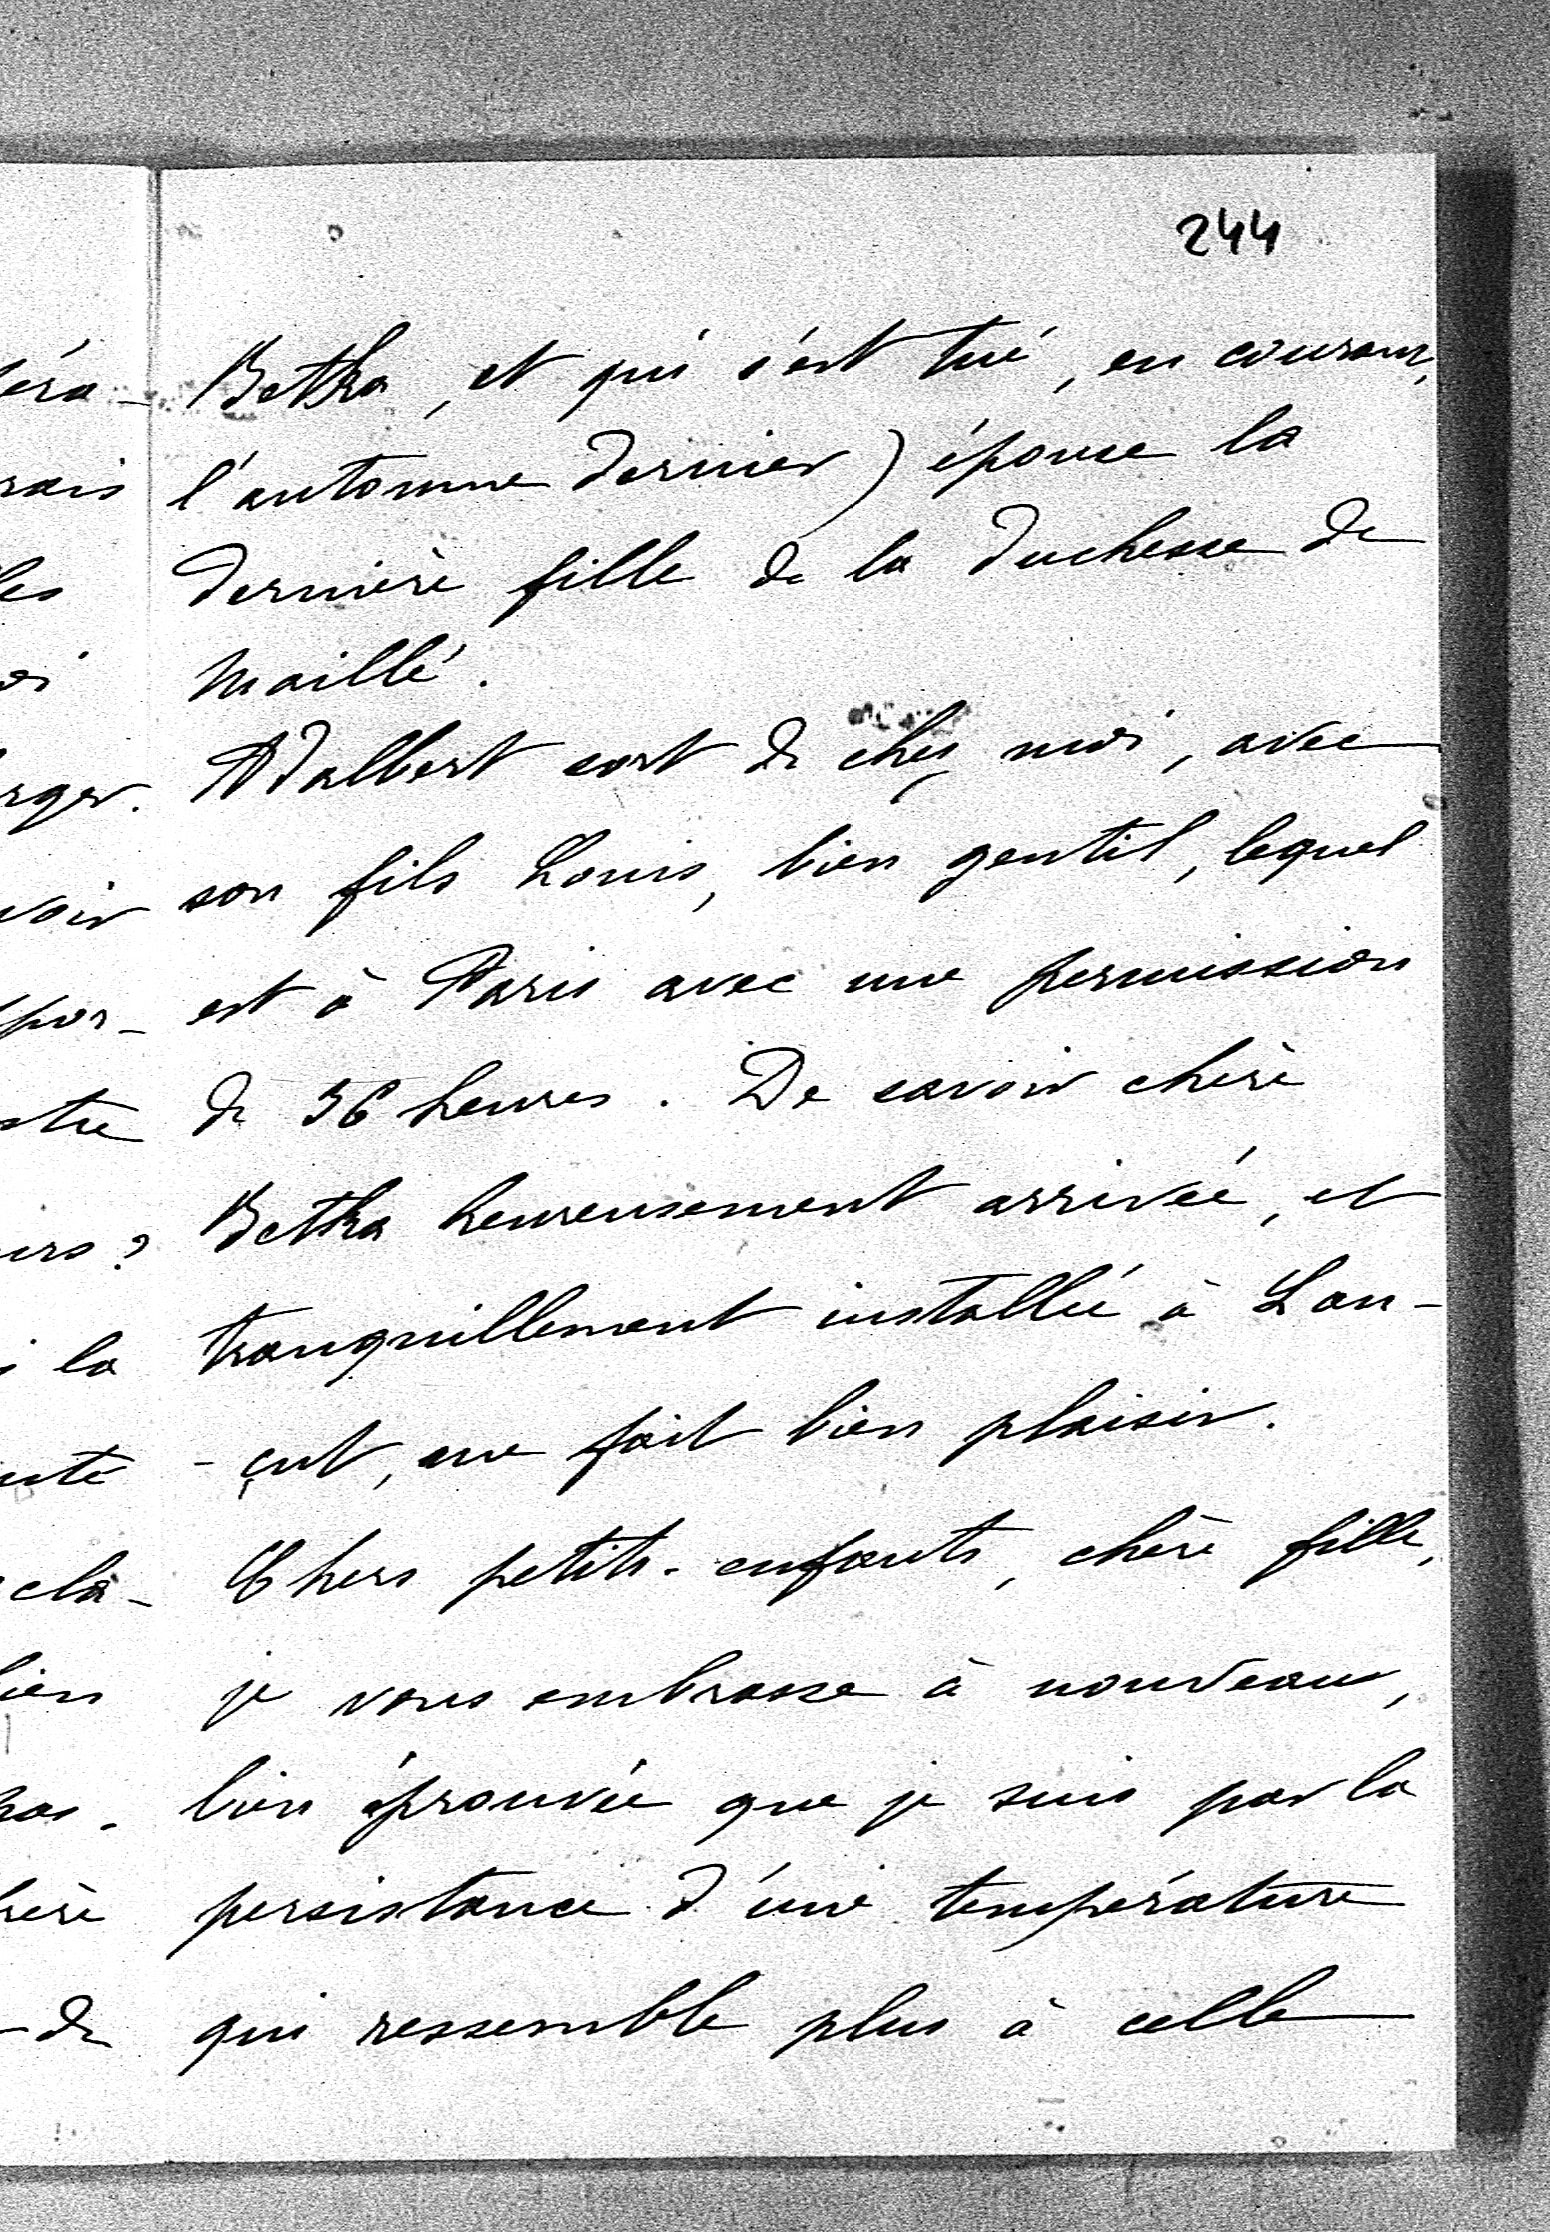 244
Betka, et qui s'est tué, en courant,
l'automne dernier) épouse la
dernière fille de la duchesse de
Maillé.
Adalbert sort de chez moi, avec
son fils Louis, bien gentil, lequel
est à Paris avec une permission
de 36 heures. De savoir chère
Betka heureusement arrivée, et
tranquillement installée à Lan-
-çut, me fait bien plaisir.
Chers petits-enfants, chère fille,
je vous embrasse à nouveau,
bien éprouvée que je suis par la
persistance d'une température
qui ressemble plus à celle